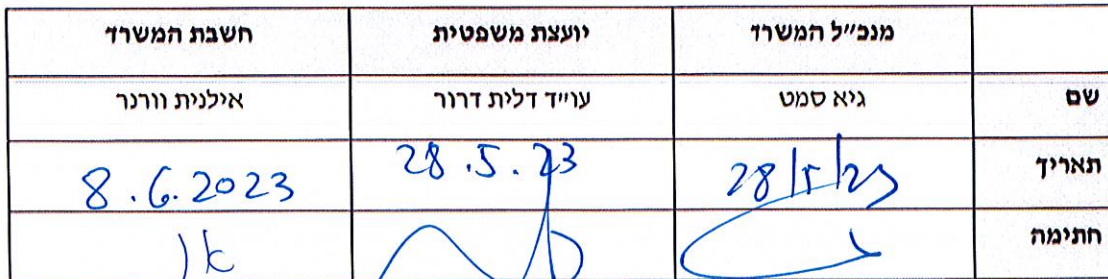 מנכ״ל המשרד יועצת משפטית חשבת המשרד
שם גיא סמט עו״ד דלית דרור אילנית וורנר
תאריך 28/5/23 28.5.23 8.6.2023
חתימה